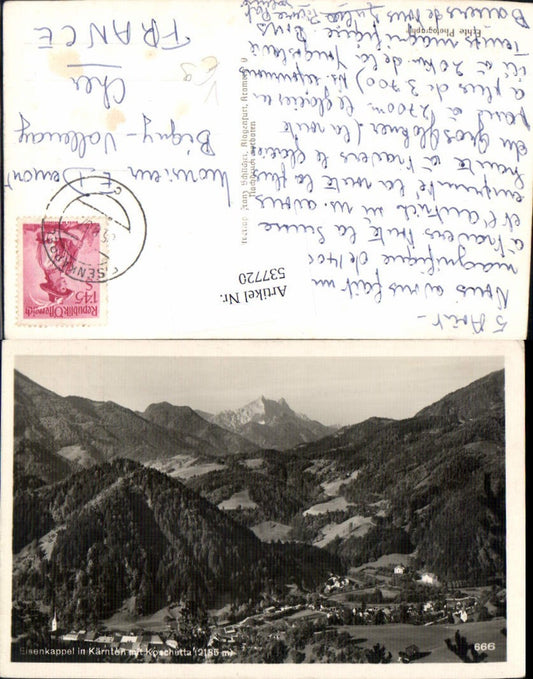 5 Août -
Nous avons fait un
magnifique
à travers toute la Suisse
et l'autriche ns. avons
emprunté la route la plus
haute à travers le glacier
du Grossglockner (la route
passe à 2700m le glacier a
à plus de 3700) ns. sommes
ici à 20 km de la Yougoslavie
Temps magnifique. Bons
Baisers de nous
Monsieur E. Demont
Bigny - Vallenay
Cher
FRANCE
Echte Photographie
Franz Schilcher, Klagenfurt,
Nachdruck verboten
EISENKAPPEL
S 1.45
Republik Österreich
Artikel Nr.
537720
Eisenkappel in Kärnten mit Koschutta (2135 m)
666